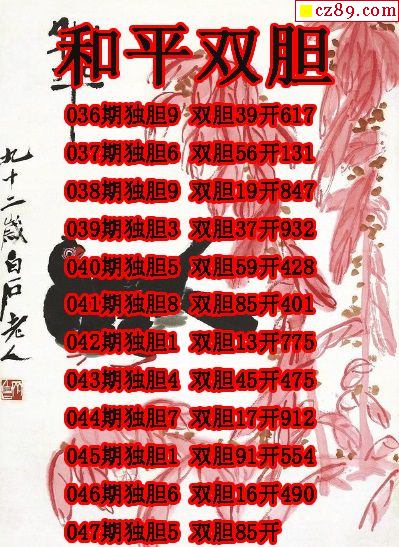 cz89.com
和平双胆
036期独胆9 双胆39开617
037期独胆6 双胆56开131
038期独胆9 双胆19开847
039期独胆3 双胆37开932
040期独胆5 双胆59开428
041期独胆8 双胆85开401
042期独胆1 双胆13开775
043期独胆4 双胆45开475
044期独胆7 双胆17开912
045期独胆1 双胆91开554
046期独胆6 双胆16开490
047期独胆5 双胆85开
九十二岁白石老人